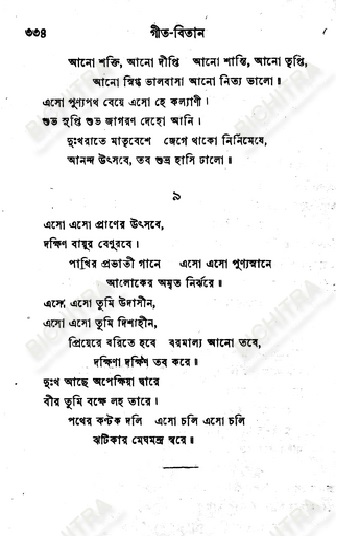 ৩৩৪ গীত-বিতান
আনো শক্তি, আনো দীপ্তি আনো শান্তি, আনো তৃপ্তি,
আনো স্নিগ্ধ ভালবাসা আনো নিত্য ভালো॥
এসো পুণ্যপথ বেয়ে এসো হে কল্যাণী।
শুভ সুপ্তি শুভ জাগরণ দেহো আনি।
দুঃখরাতে মাতৃবেশে জেগে থাকো নির্নিমেষে,
আনন্দ উৎসবে, তব শুভ্র হাসি ঢালো॥
৯
এসো এসো প্রাণের উৎসবে,
দক্ষিণ বায়ুর বেণুরবে।
পাখির প্রভাতী গানে এসো এসো পুণ্যস্নানে
আলোকের অমৃত নির্ঝরে॥
এসো এসো তুমি উদাসীন,
এসো এসো তুমি দিশাহীন,
প্রিয়েরে বরিতে হবে বরমাল্য আনো তবে,
দক্ষিণা দক্ষিণ তব করে॥
দুঃখ আছে অপেক্ষিয়া দ্বারে
বীর তুমি বক্ষে লহ তারে॥
পথের কণ্টক দলি এসো চলি এসো চলি
ঝটিকার মেঘমন্দ্র স্বরে॥
BICHITRA
BICHITRA
BICHITRA
BICHITRA